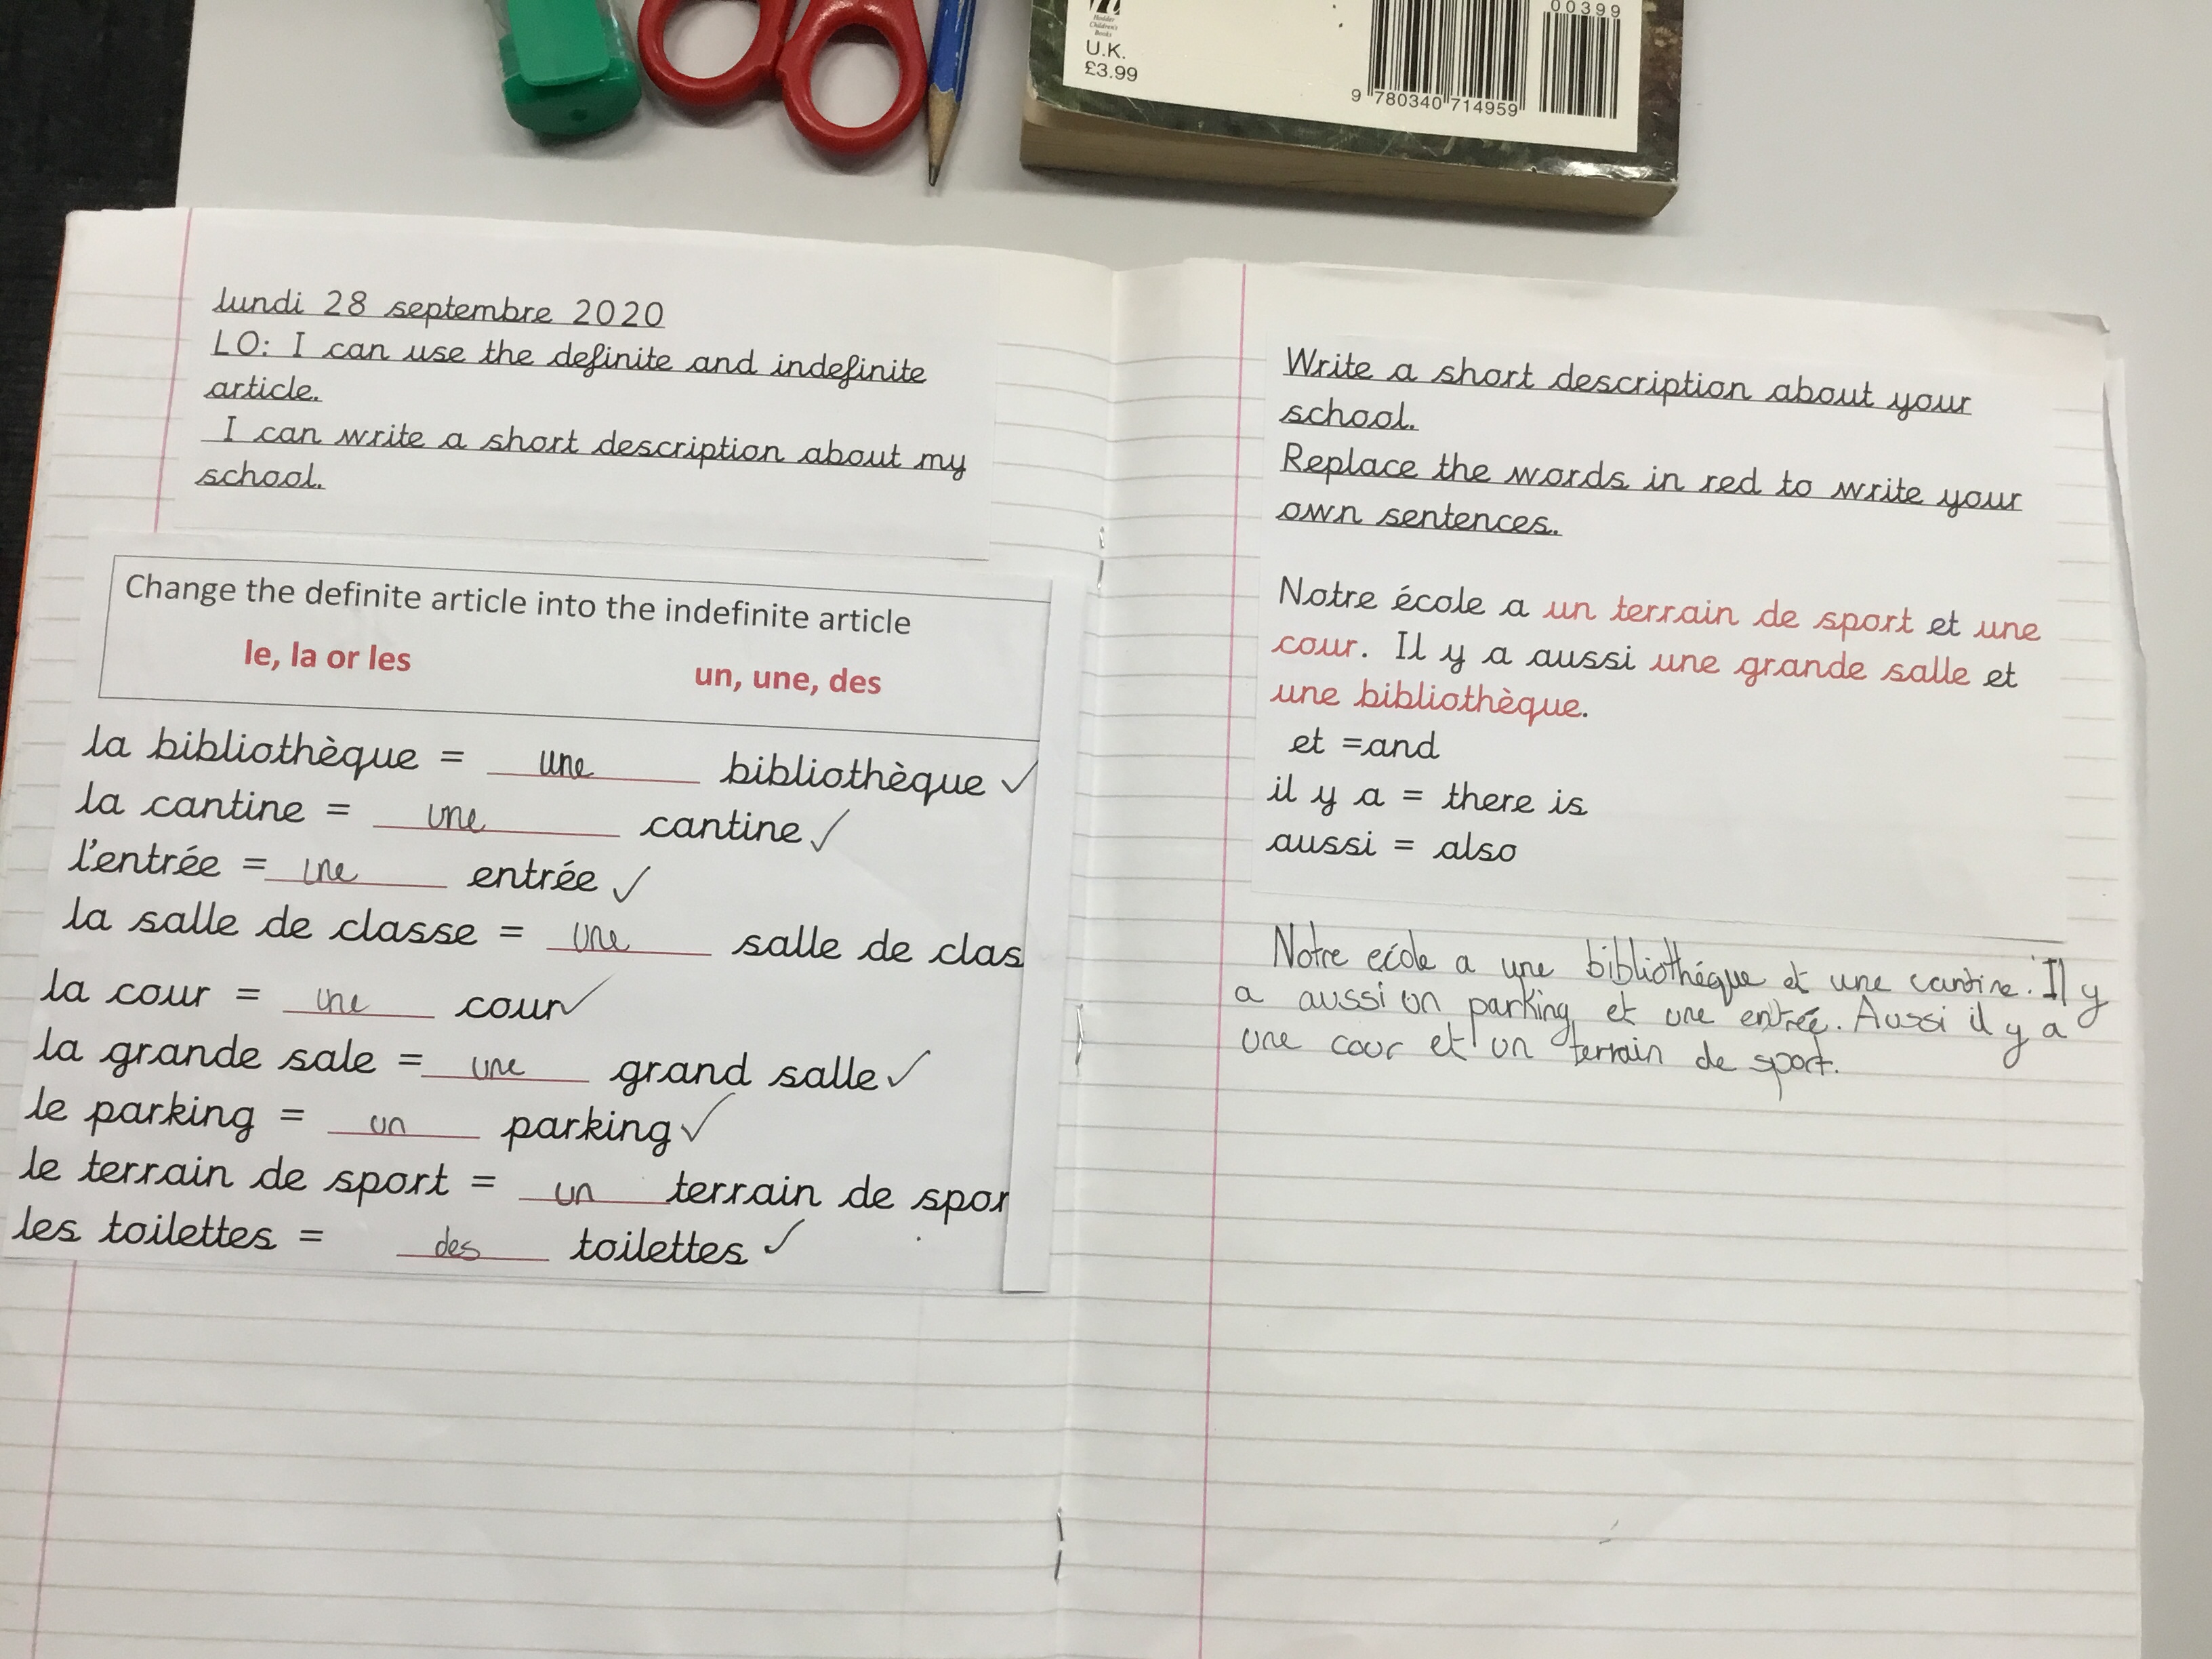 Hodder
Children's
Books
U.K.
£3.99
00399
9 780340 714959
lundi 28 septembre 2020
LO: I can use the definite and indefinite
article.
I can write a short description about my
school.
Change the definite article into the indefinite article
le, la or les un, une, des
la bibliothèque = une bibliothèque ✓
la cantine = une cantine ✓
l'entrée = une entrée ✓
la salle de classe = une salle de clas
la cour = une cour ✓
la grande sale = une grand salle ✓
le parking = un parking ✓
le terrain de sport = un terrain de spor
les toilettes = des toilettes ✓
Write a short description about your
school.
Replace the words in red to write your
own sentences.
Notre école a un terrain de sport et une
cour. Il y a aussi une grande salle et
une bibliothèque.
et =and
il y a = there is
aussi = also
Notre école a une bibliothéque et une cantine. Il y
a aussi un parking et une entrée. Aussi il y a
une cour et un terrain de sport.